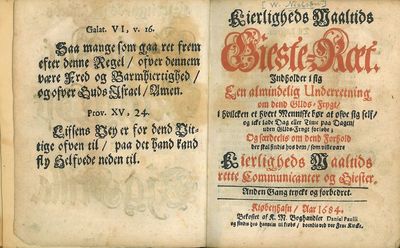 Galat. VI, v. 16.
Saa mange som gaa ret frem
efter denne Regel / ofver dennem
være Fred og Barmhiertighed /
og ofver Guds Israel / Amen.
Prov. XV, 24.
Lifsens Vey er for dend Vit-
tige ofven til / paa det hand kand
fly Helfvede neden til.
Kierligheds Maaltids
Gieste-Ræt.
Indholder i sig
Een almindelig Underretning
om dend Guds-Frygt /
i hvilcken et hvert Menniske bør at øfve sig self /
og icke lade Dag eller Time paa Dagen /
uden Guds-Frygt forløbe;
Og særdeelis om dend Forhold
der skal findis hos dem / som ville være
Kierligheds Maaltids
rette Communicanter og Giester.
Anden Gang tryckt og forbedret.
Kiøbenhafn / Aar 1684.
Bekostet af K. M. Boghandler Daniel Paulli
og findis hos hannem til kiøbs / boendis ved vor Frue Kircke.